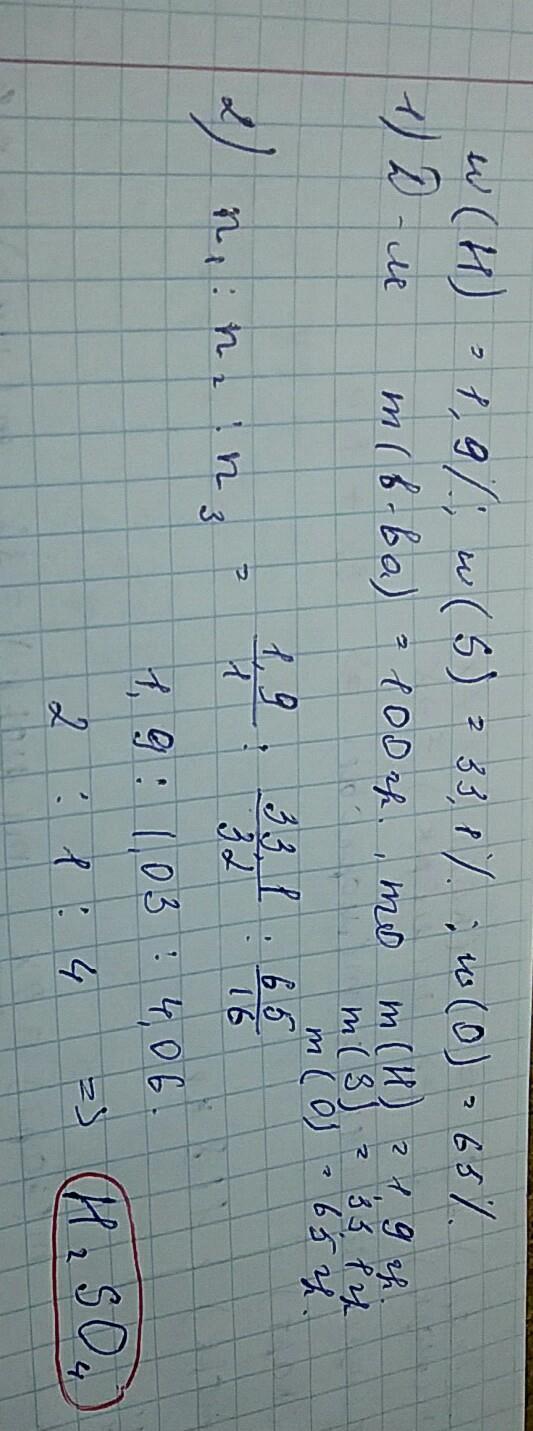 w(H) = 1,9%; w(S) = 33,1%; w(O) = 65%.
1) D-м m(в-ва) = 100 гр., то m(H) = 1,9 гр.
m(S) = 33,1 гр
m(O) = 65 гр.
2) n₁ : n₂ : n₃ = 1,9/1 : 33,1/32 : 65/16
1,9 : 1,03 : 4,06.
2 : 1 : 4 => H₂SO₄